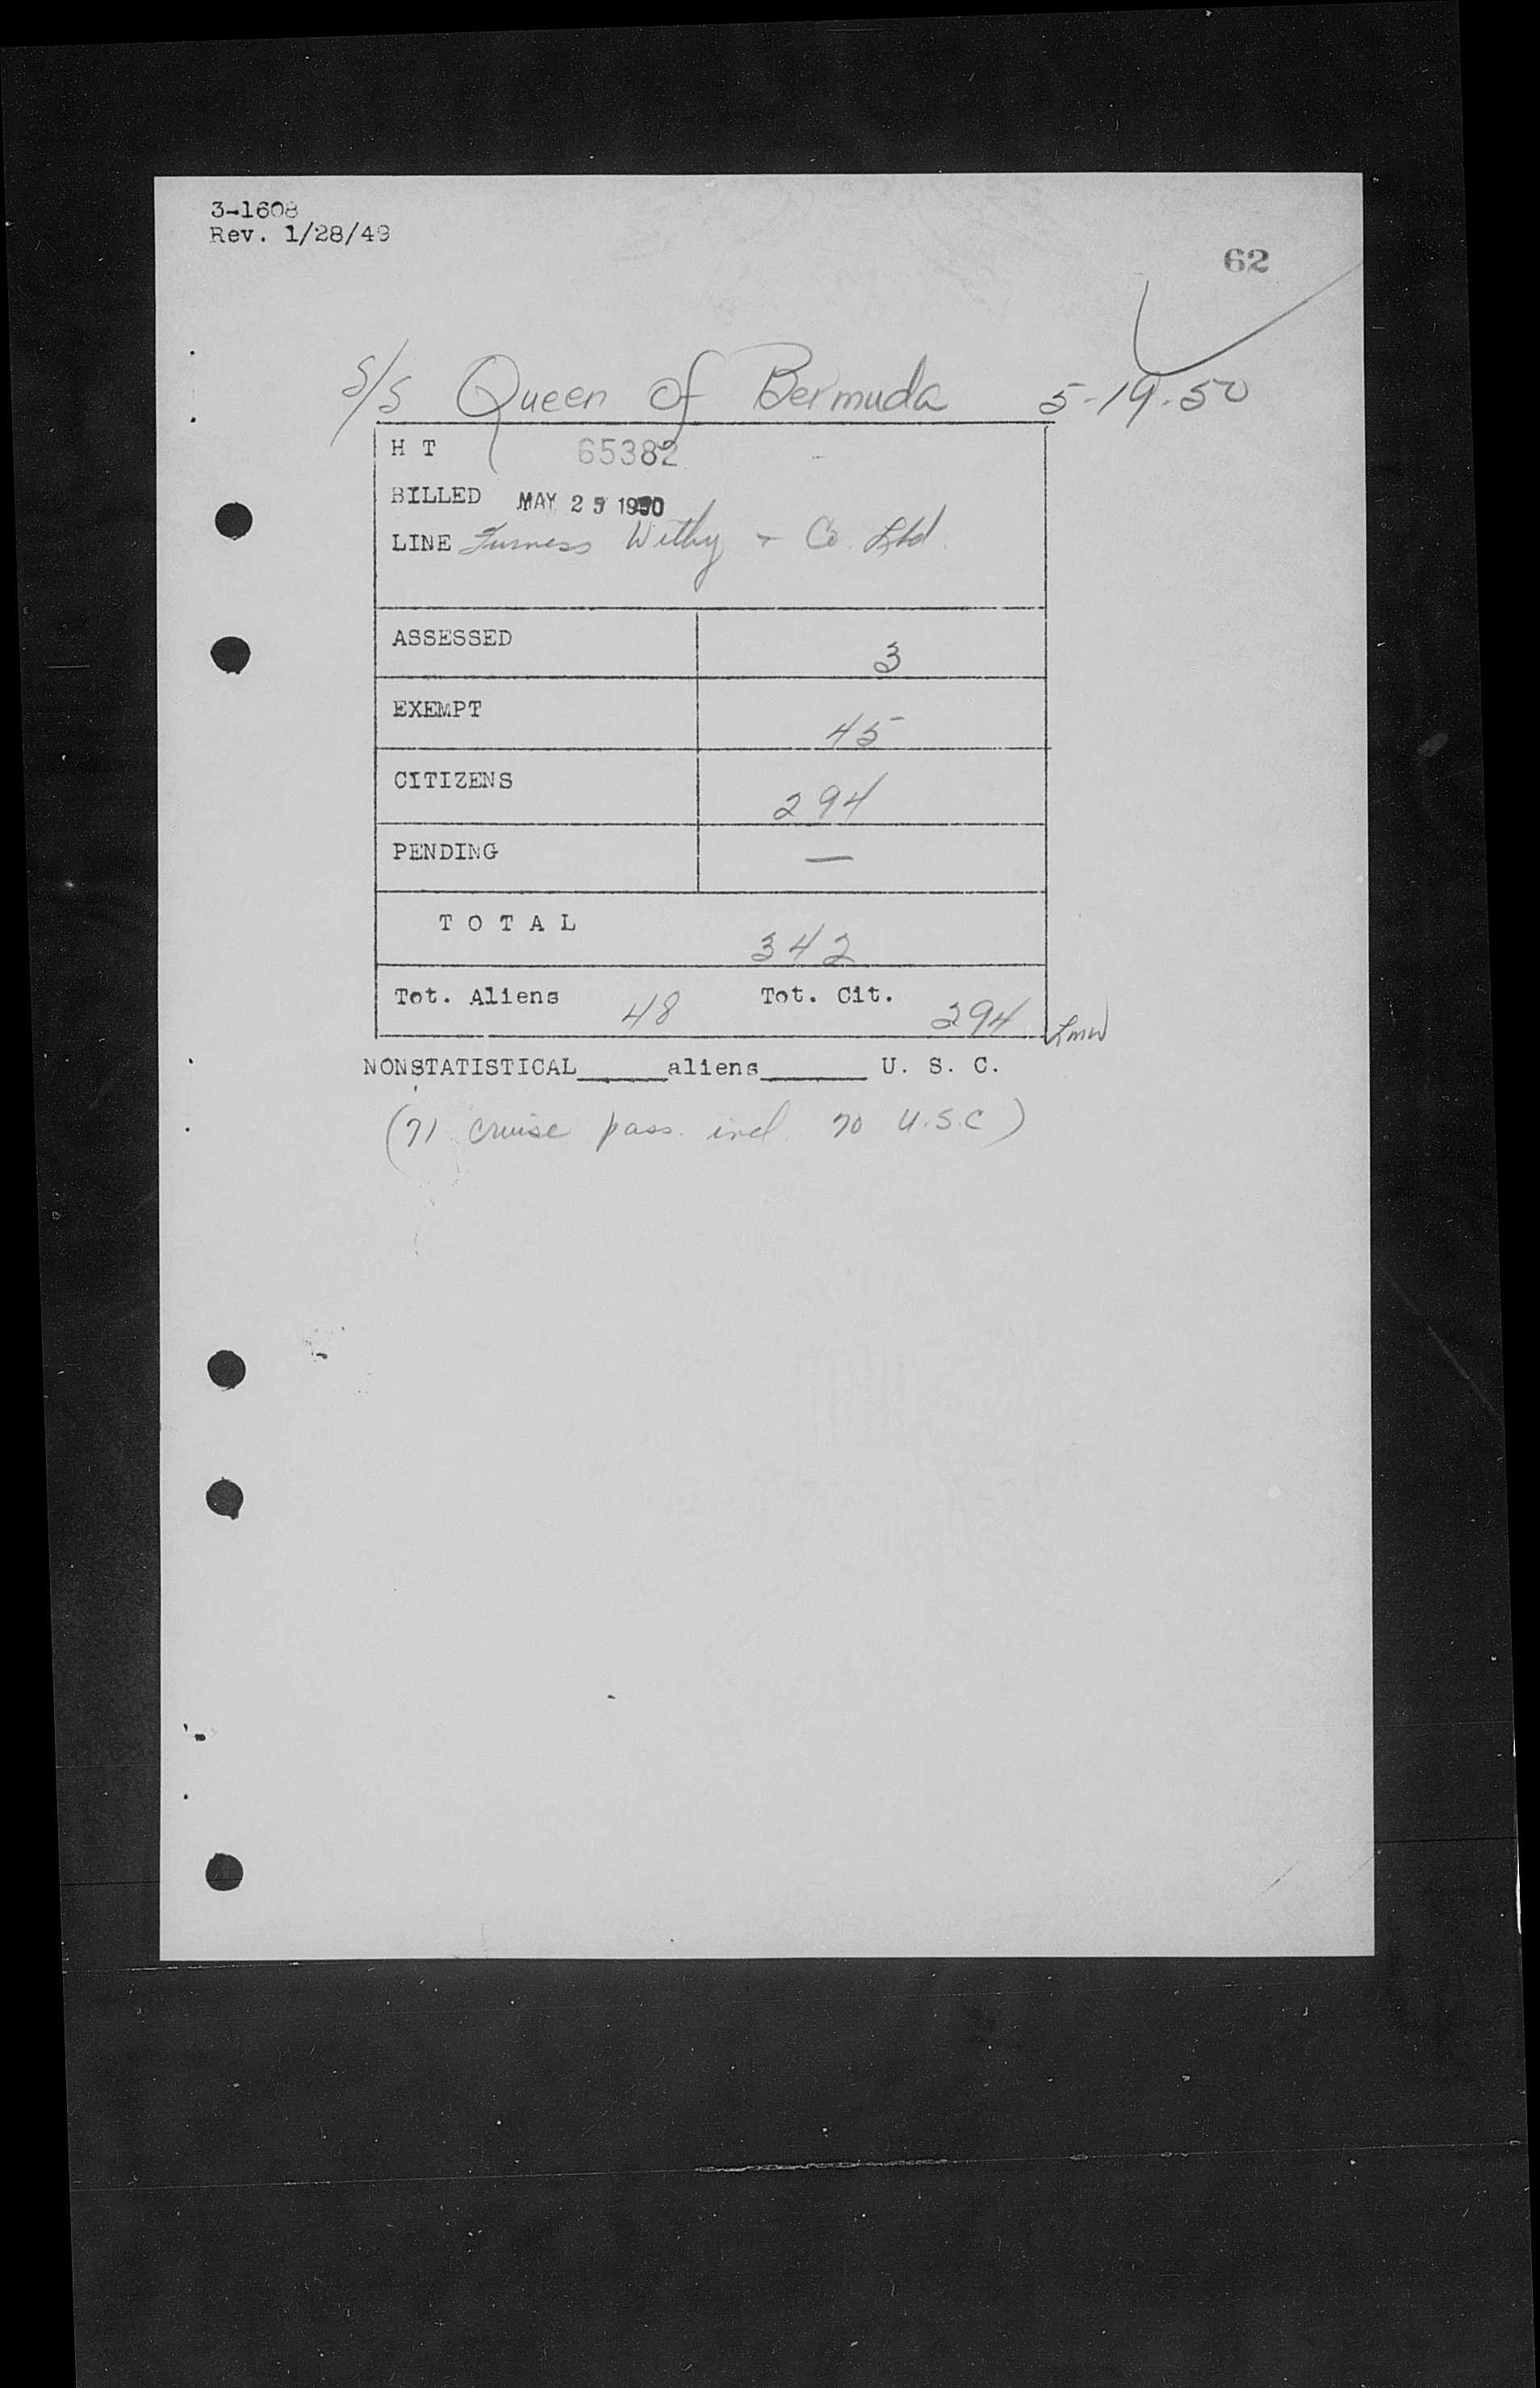 3-1608
Rev. 1/28/49
62
S/S Queen of Bermuda 5-19-50
H T 65382
BILLED MAY 25 1950
LINE Furness Withy + Co. Ltd.
ASSESSED 3
EXEMPT 45
CITIZENS 294
PENDING —
T O T A L 342
Tot. Aliens 48 Tot. Cit. 294 Lmw
NONSTATISTICAL_____aliens______ U. S. C.
(71 cruise pass. incl. 70 U.S.C)